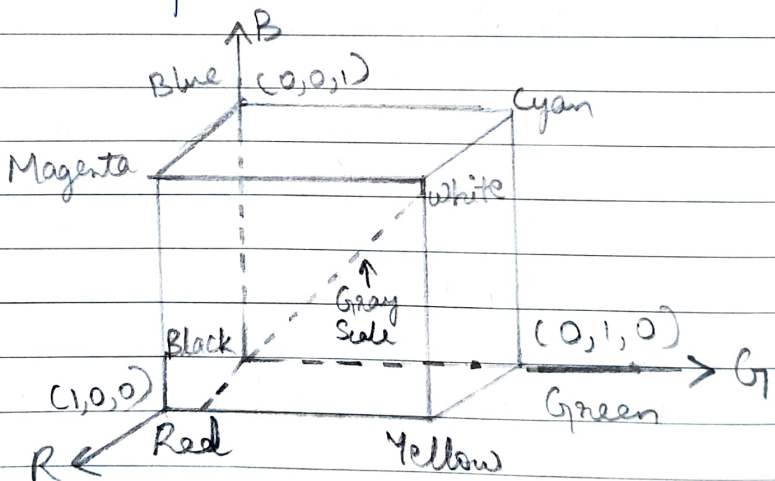 B
Blue (0,0,1)
Cyan
Magenta
White
Gray
Scale
Black
(0,1,0)
G
(1,0,0)
Green
Red
Yellow
R